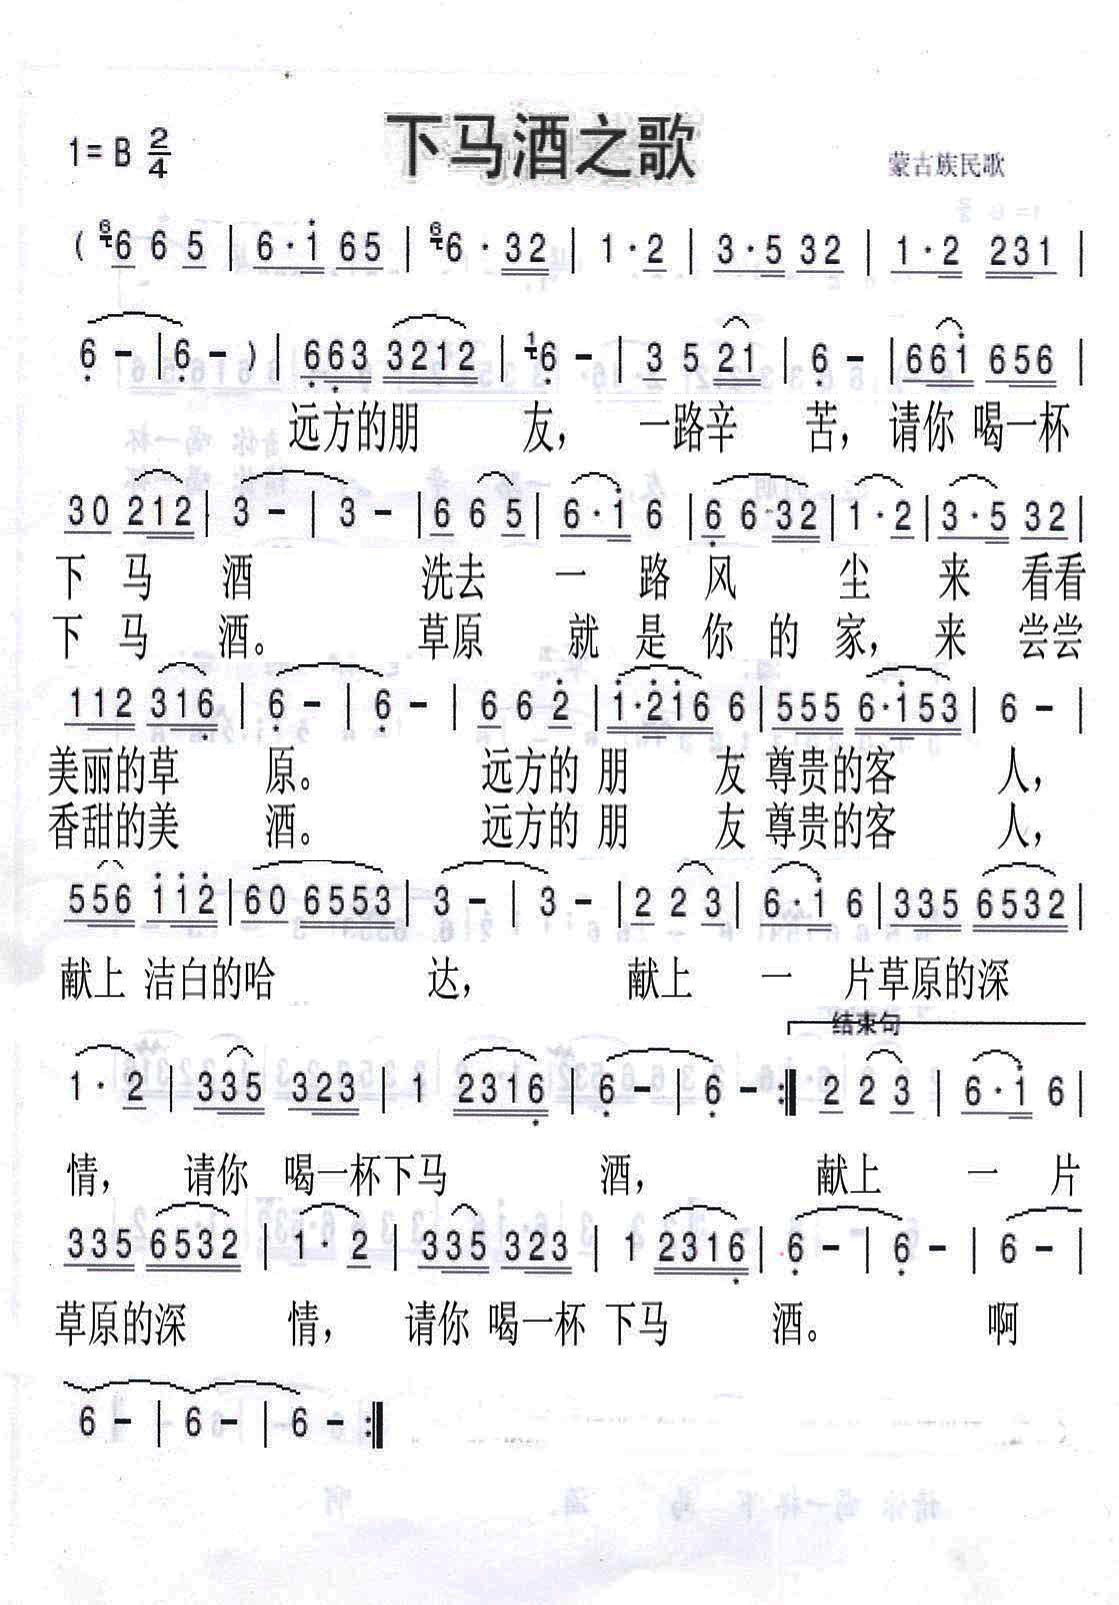 下马酒之歌
1=B 2/4
蒙古族民歌
( 6 6 6 5 | 6·1 65 | 6 6·32 | 1·2 | 3·5 32 | 1·2 231 |
6 - | 6 - ) | 663 3212 | 1 6 - | 3 5 21 | 6 - | 661 656 |
远方的朋 友， 一路辛 苦，请你 喝一杯
30 212 | 3 - | 3 - | 6 6 5 | 6·1 6 | 6 6·32 | 1·2 | 3·5 32 |
下 马 酒 洗去 一 路 风 尘 来 看看
下 马 酒。 草原 就 是 你 的 家， 来 尝尝
112 316 | 6 - | 6 - | 6 6 2 | 1·216 6 | 555 6·153 | 6 - |
美丽的草 原。 远方的 朋 友 尊贵的客 人，
香甜的美 酒。 远方的 朋 友 尊贵的客 人，
556 112 | 60 6553 | 3 - | 3 - | 2 2 3 | 6·1 6 | 335 6532 |
献上 洁白的哈 达， 献上 一 片草原的深
结束句
1·2 | 335 323 | 1 2316 | 6 - | 6 - :‖ 2 2 3 | 6·1 6 |
情， 请你 喝一杯下马 酒， 献上 一 片
335 6532 | 1·2 | 335 323 | 1 2316 | 6 - | 6 - | 6 - |
草原的深 情， 请你 喝一杯 下马 酒。 啊
6 - | 6 - | 6 - :‖